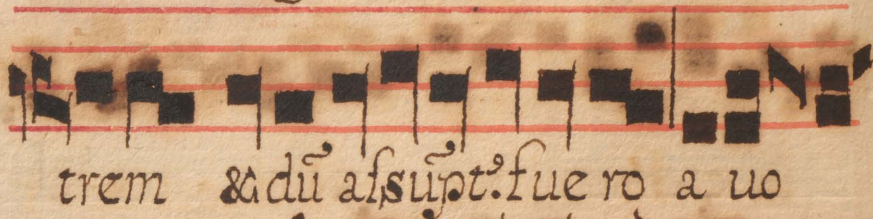 trem &dũ aſsũpt᷒.fuero a uo